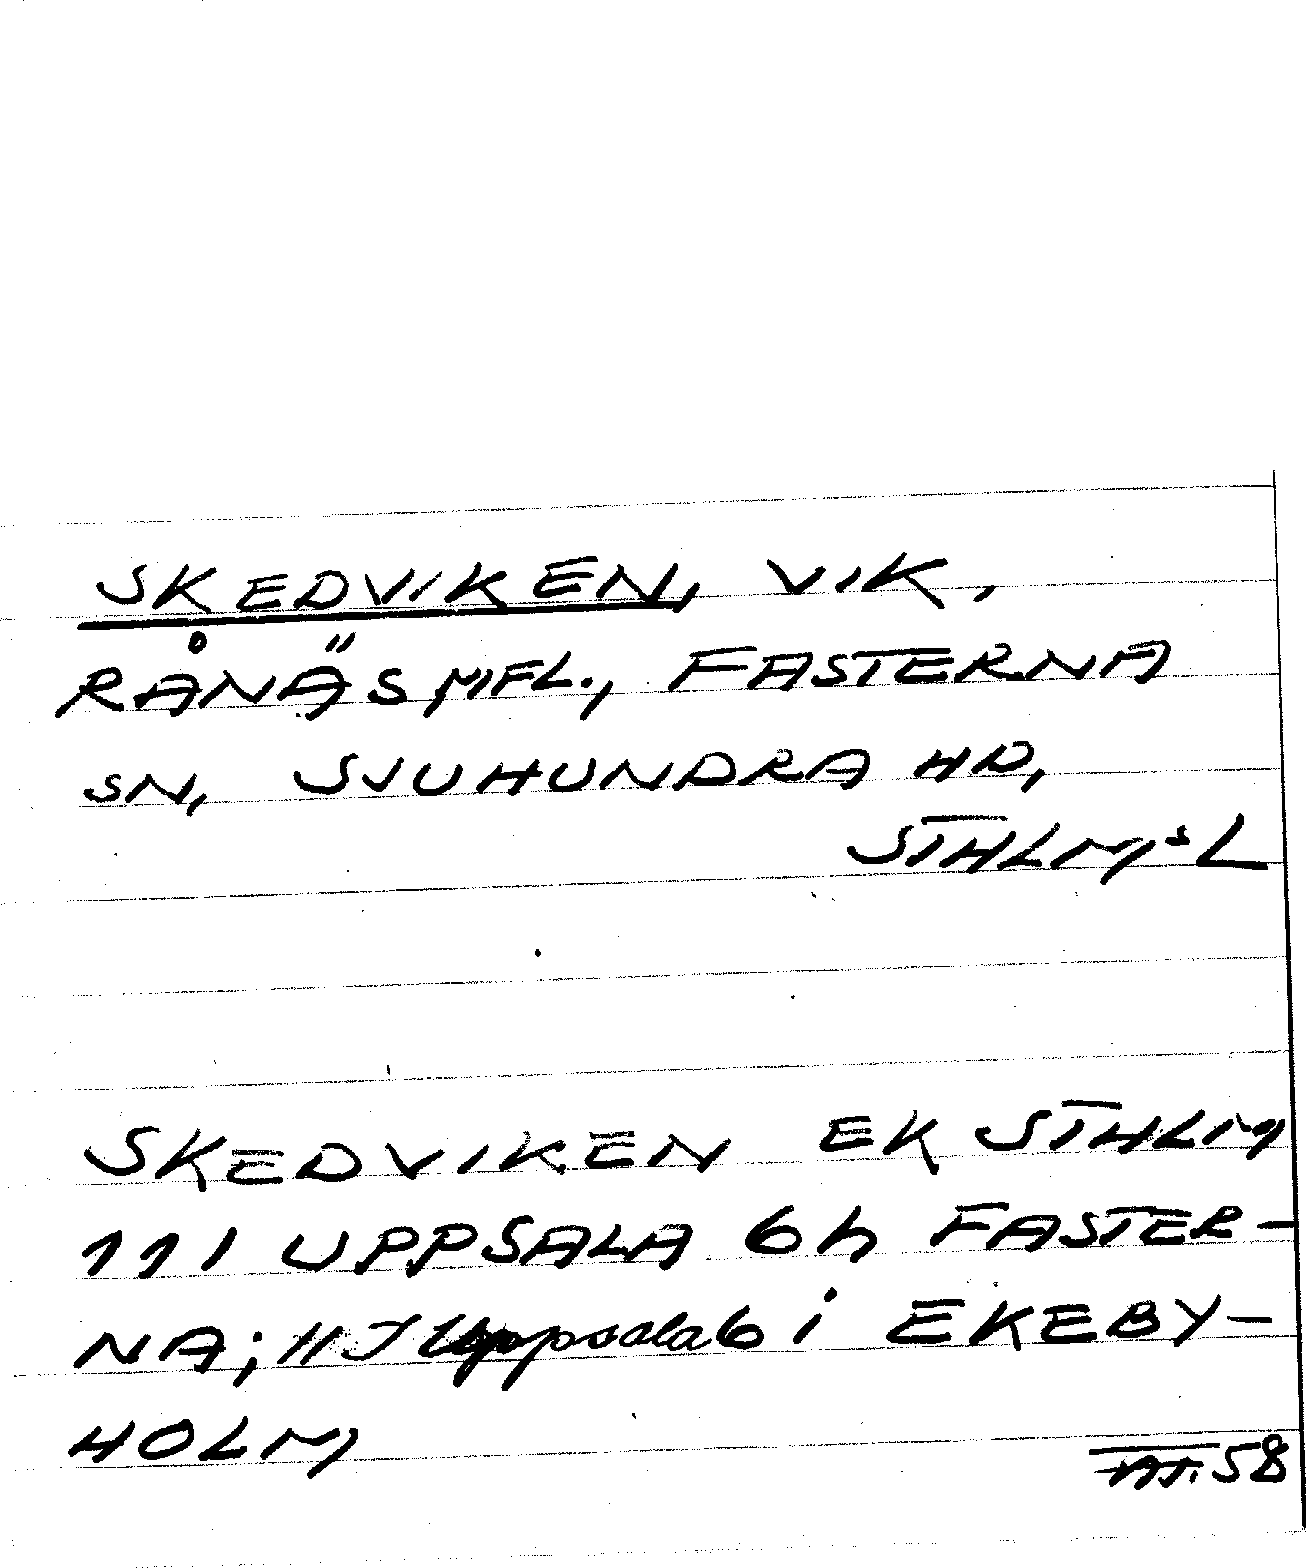 SKEDVIKEN, VIK,
RÅNÄS MFL., FASTERNA
SN, SJUHUNDRA HD,
STHLMS L
SKEDVIKEN EK STHLM
111 UPPSALA 6h FASTER-
NA; 11I Uppsala 6i EKEBY-
HOLM
58